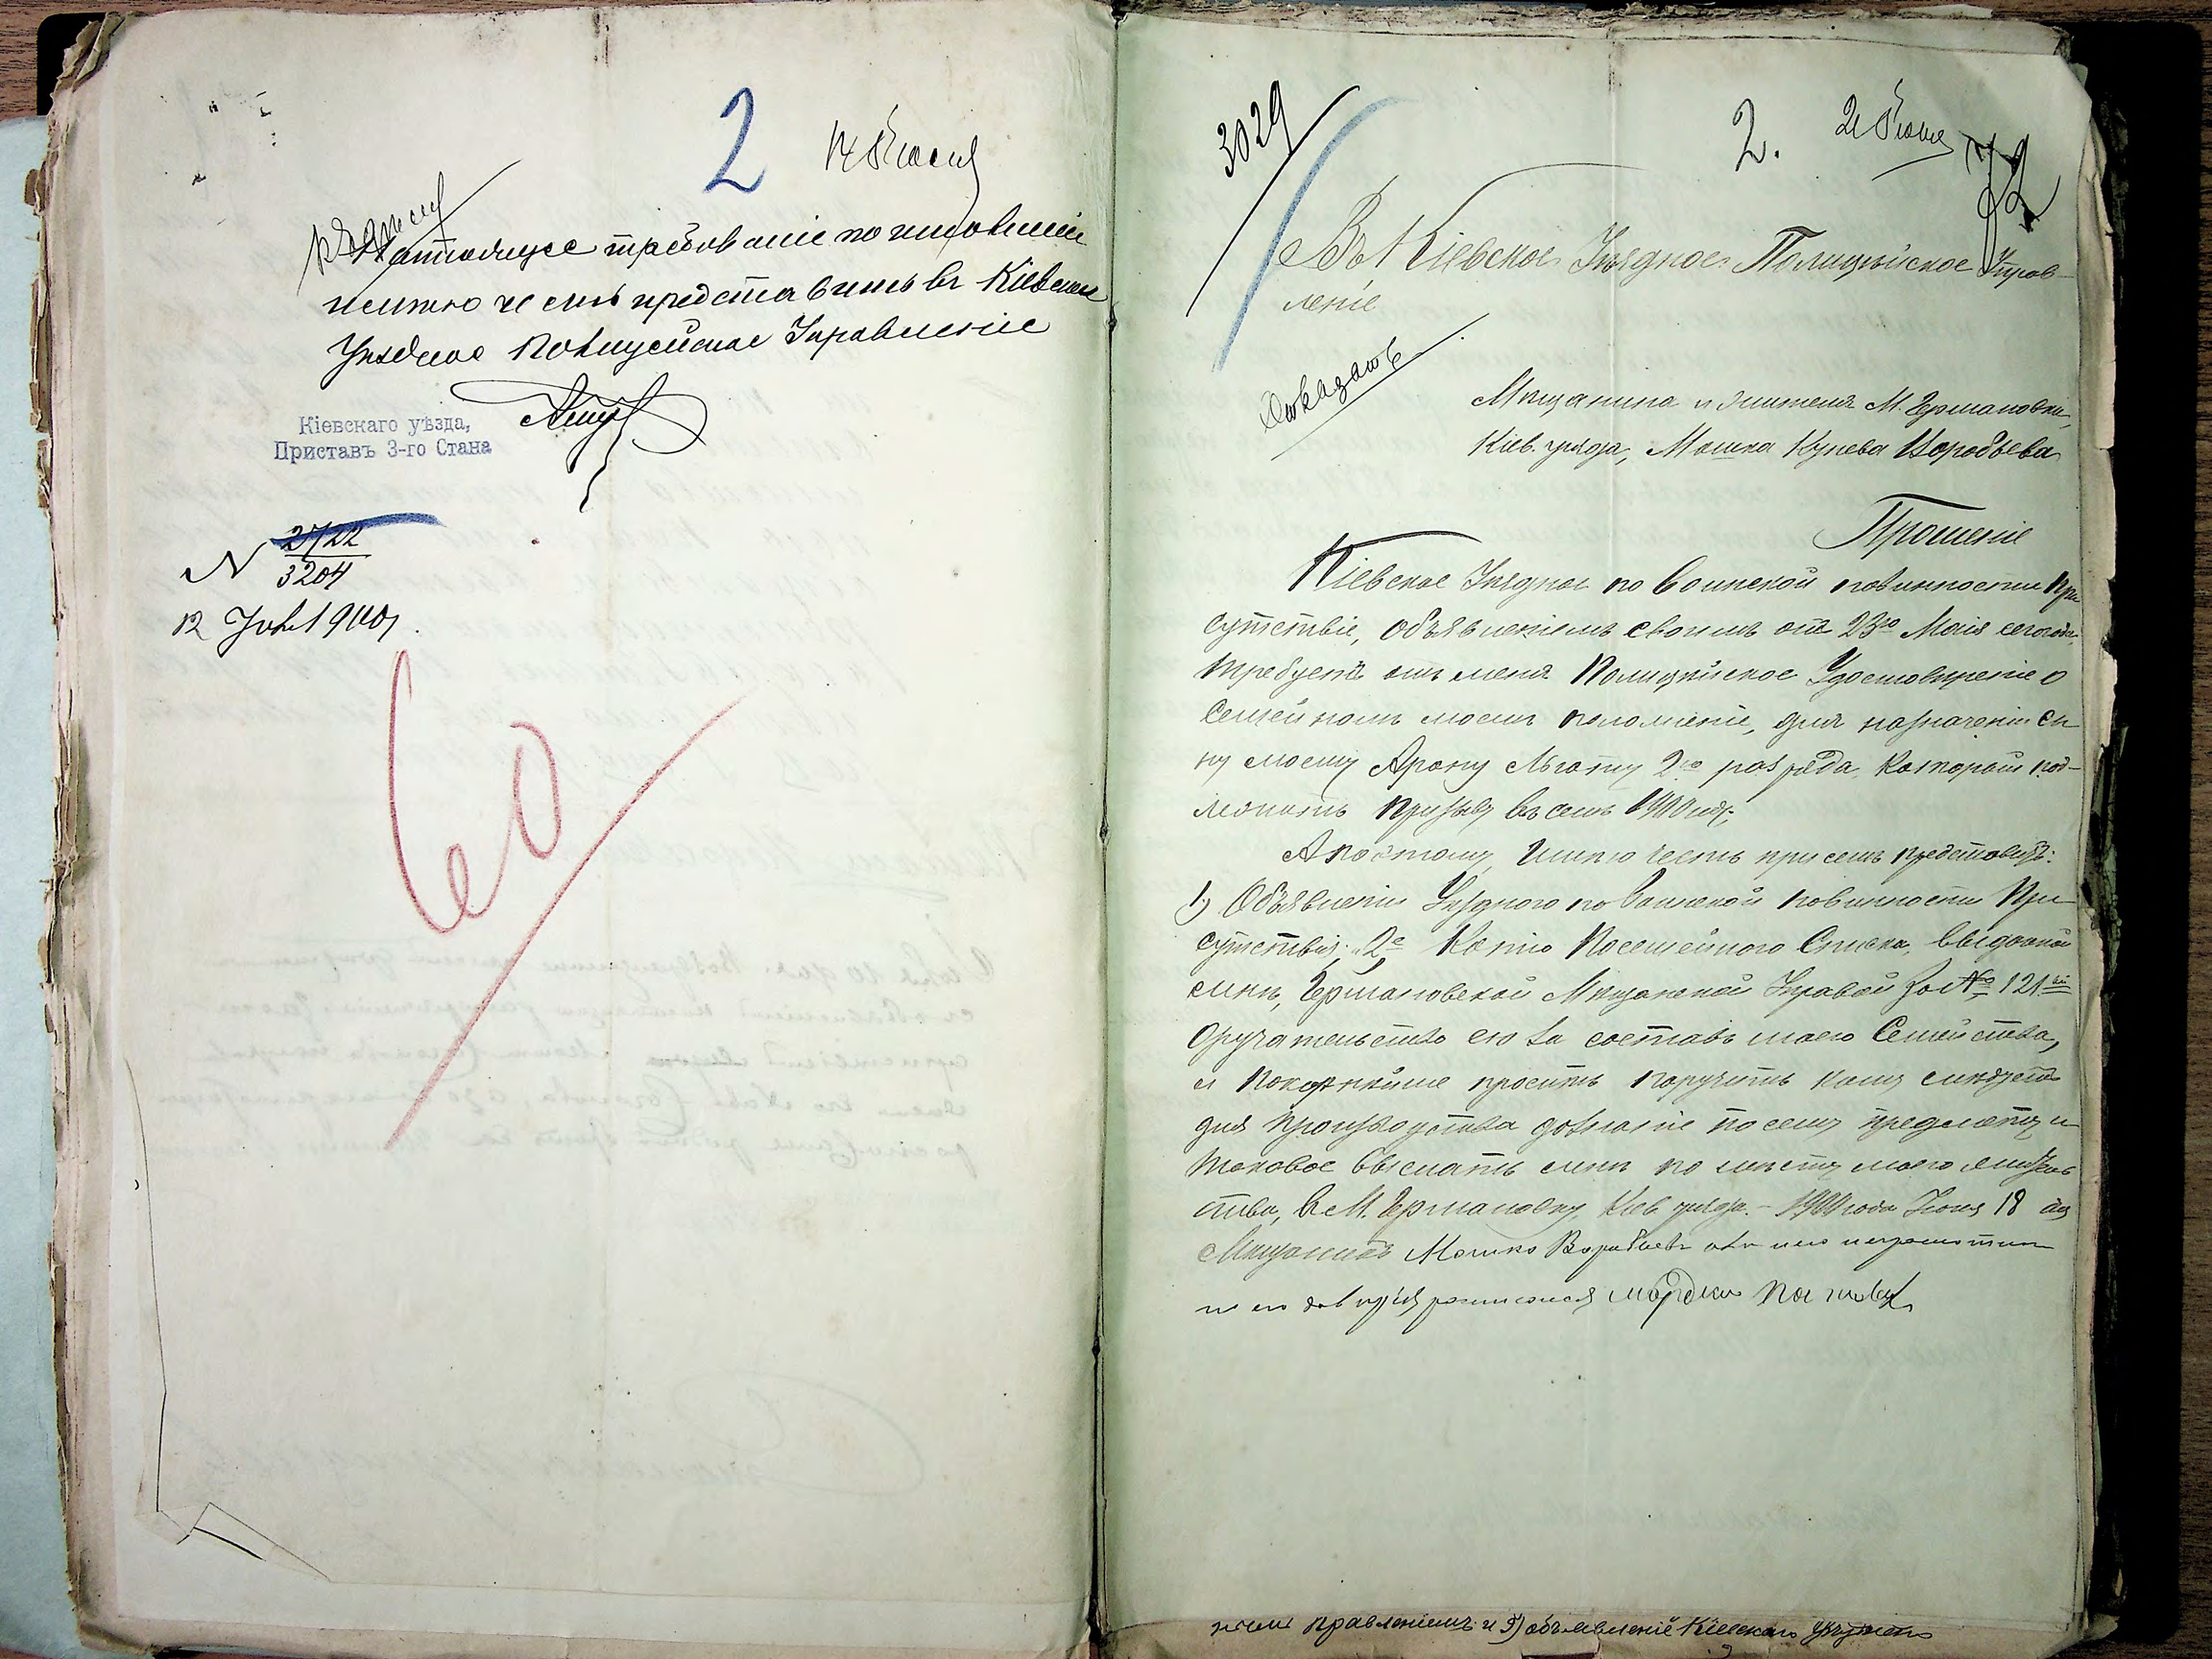 2
14 Іюля
Настоящее требованіе по исполненіи
имѣю честь представить въ Кіевское
Уѣздное Полицейское Управленіе
Кіевскаго уѣзда,
Приставъ 3-го Стана
N 2722
3204
12 1900
60
3029
2.
21 Іюня
72
Въ Кіевское Уѣздное Полицейское Управ-
леніе
Мѣщанина и жителя М. Германовки,
Кіев. уѣзда, Мошка Воробьева
Прошеніе
Кіевское Уѣздное по воинской повинности При
сутствіе, объявленіемъ своимъ отъ 23го Маія сего года
требуетъ отъ меня Полицейское Удостовѣреніе о
Семейномъ моемъ положеніе, для назначенія Сы
ну моему Арону Льготу 2го разряда, который под-
лежитъ призыву въ семъ 1900 году.
А поэтому имѣю честь при семъ представить:
1) Объявленіе Уѣзднаго по Воинской повинности При
сутствія; 2е Копію Посемейного Списка, выданной
мнѣ, Германовской Мѣщанской Управой за № 121
ручательство его за составъ моего Семейства,
и покорнѣйше просить поручить кому слѣдуетъ
для производства дознаніе по сему предмету и
таковое выслать мнѣ по мѣсту моего житель
ства, въ М. Германовку Кіев уѣзда. - 1900 года Іюня 18 дня
Мѣщанинъ Мошко Воробьевъ а за него неграмотнаго
по его довѣрію росписался Мордко
правленіемъ и 3) объявленіе Кіевскаго